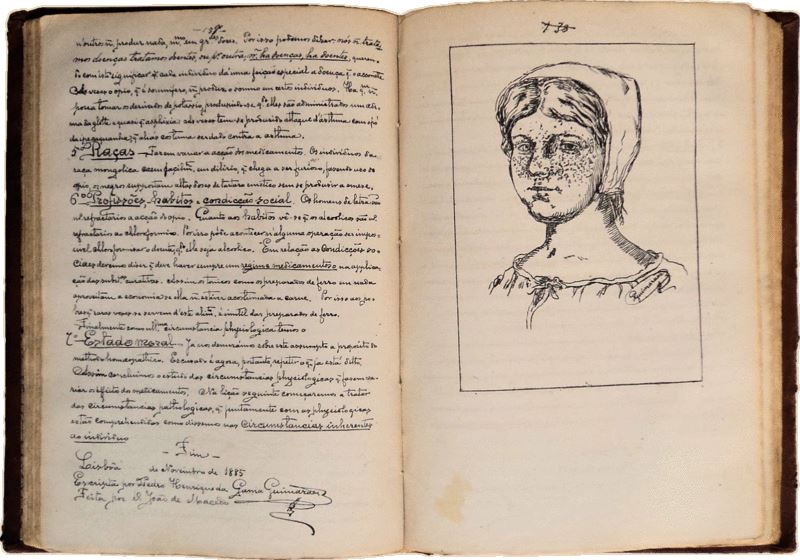 n'outro ñ produz nada, mmo em grdes dóses. Por isso podemos dizer: nós ñ trata-
mos doenças tratamos doentes, ou pr outra, ñ ha doenças, ha doentes, queren-
do com isto significar q̃ cada individuo dá uma feição especial a doença q̃ o acomette
As vezes o opio, q̃ é somnifero, ñ produz o somno em certos individuos. Ha qm ñ
possa tomar os derivados de potassio, produsindo-se qdo elles são administrados um ede-
ma da glote e quasi q̃ asphixia e ás vezes tem-se produsido ataque d'asthma com o pó
da ipequanha, q̃ aliás costuma ser dado contra a asthma.
5º Raças — Fazem variar a acção dos medicamentos. Os individuos da
raça mongolica cem facilmte em delirio, q̃ chega a ser furioso, fasendo uso do
opio, os negros supportam altas dóses de tartaro emetico sem se produsir a anose.
6º Profissões, habitos e condicção social. Os homens de letras são
refractarios a acção do opio. Quanto aos habitos vê-se q̃ os alcoolicos são
refractarios ao chloroformio. Por isso póde acontecer si alguma operação ser impos-
sivel chloroformisar o doente, qdo elle seja alcoolico. Em relação ás condicções so-
ciaes devemos diser q̃ deve haver sempre um regime medicamentoso na applica-
ção das subst. curativas. Assim os tonicos como os preparados de ferro em nada
aproveitam a economia se ella ñ estiver acostumada a carne. Por isso aos po-
bres, raras vezes se servem d'este alimto, é inutil dar preparados de ferro.
Finalmente como ultma circunstancia physiologica temos o
7º Estado moral — Já nos demorámos sobre este assumpto a proposito do
methodo homeopathico. Escusado é agora, portanto, repetir o q̃ já está dito.
Assim concluimos o estudo das circunstancias physiologicas q̃ fasem va-
riar os effeitos dos medicamentos. Na lição seguinte começaremos a tratar
das circunstancias pathologicas, q̃ juntamente com as physiologicas
estão comprehendidas como dissemos nas circunstancias inherentes
ao individuo
- Fim -
Lisbôa de Novembro de 1885
Escripta por Pedro Henriques da Gama Guimarães
Feita por D. João de Macedo
Guimarães